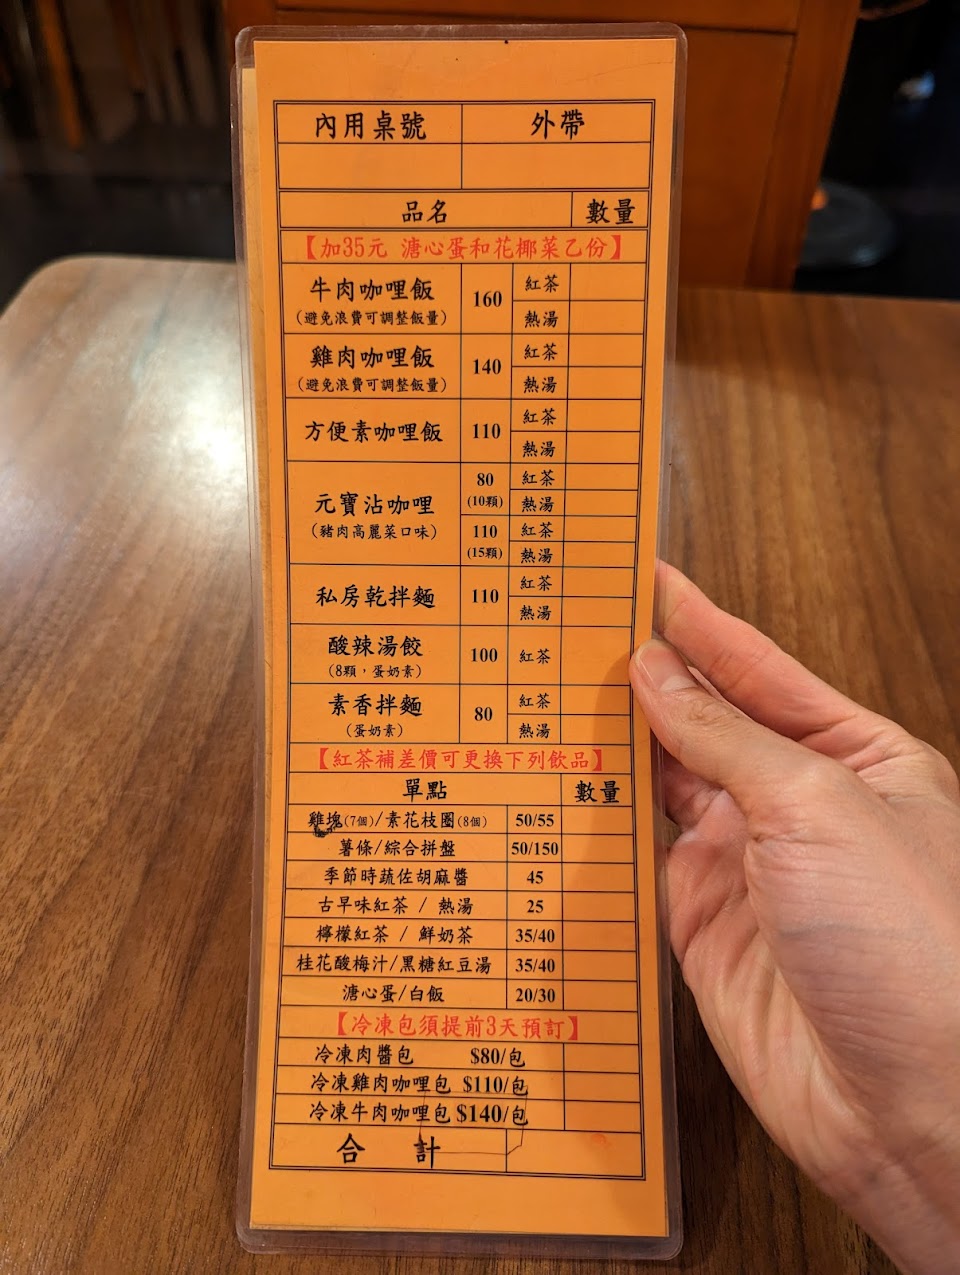 內用桌號 外帶
品名 數量
【加35元 溏心蛋和花椰菜乙份】
牛肉咖哩飯 160 紅茶
(避免浪費可調整飯量) 熱湯
雞肉咖哩飯 140 紅茶
(避免浪費可調整飯量) 熱湯
方便素咖哩飯 110 紅茶
熱湯
元寶沾咖哩 80 紅茶
(豬肉高麗菜口味) (10顆) 熱湯
110 紅茶
(15顆) 熱湯
私房乾拌麵 110 紅茶
熱湯
酸辣湯餃 100 紅茶
(8顆，蛋奶素)
素香拌麵 80 紅茶
(蛋奶素) 熱湯
【紅茶補差價可更換下列飲品】
單點 數量
雞塊(7個)/素花枝圈(8個) 50/55
薯條/綜合拼盤 50/150
季節時蔬佐胡麻醬 45
古早味紅茶 / 熱湯 25
檸檬紅茶 / 鮮奶茶 35/40
桂花酸梅汁/黑糖紅豆湯 35/40
溏心蛋/白飯 20/30
【冷凍包須提前3天預訂】
冷凍肉醬包 $80/包
冷凍雞肉咖哩包 $110/包
冷凍牛肉咖哩包 $140/包
合 計